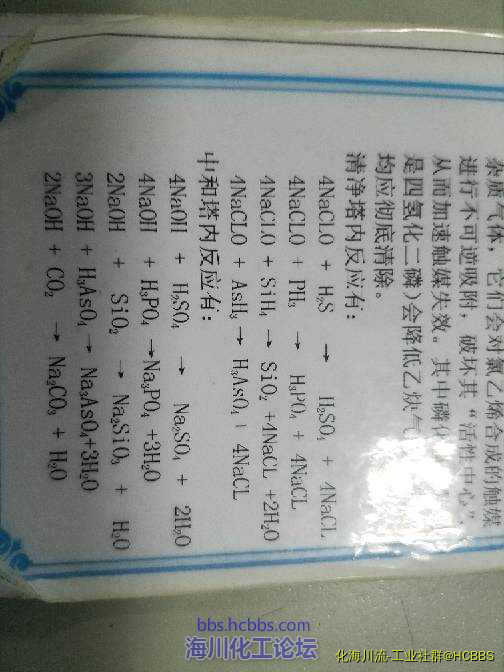 杂质气体，它们会对氯乙烯合成的触媒
进行不可逆吸附，破坏其“活性中心”
从而加速触媒失效。其中磷化
是四氢化二磷)会降低乙炔气
均应彻底清除。
清净塔内反应有：
4NaCLO + H₂S → H₂SO₄ + 4NaCL
4NaCLO + PH₃ → H₃PO₄ + 4NaCL
4NaCLO + SiH₄ → SiO₂ +4NaCL +2H₂O
4NaCLO + AsH₃ → H₃AsO₄ + 4NaCL
中和塔内反应有：
4NaOH + H₂SO₄ → Na₂SO₄ + 2H₂O
4NaOH + H₃PO₄ →Na₃PO₄ +3H₂O
2NaOH + SiO₂ → Na₂SiO₃ + H₂O
3NaOH + H₃AsO₄ → Na₃AsO₄+3H₂O
2NaOH + CO₂ → Na₂CO₃ + H₂O
bbs.hcbbs.com
海川化工论坛
化海川流-工业社群@HCBBS